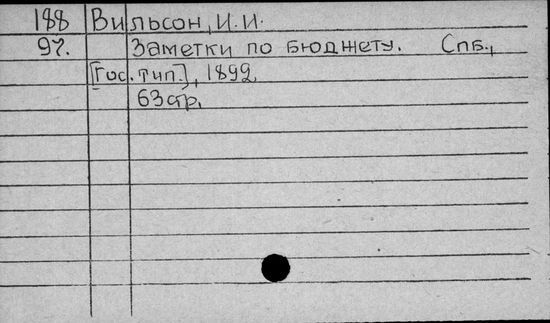 188 Вильсон, И.И.
97. Заметки по бюджету. Спб.,
[Гос. тип.], 1899.
63 стр.